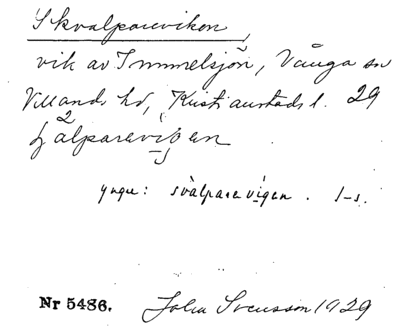 Skvalpareviken,
vik av Immelsjön, Vånga sn
Villands hd, Kristianstads l. 29
yngre: svàlparevigen. I-s.
Nr 5486. John Svensson 1929